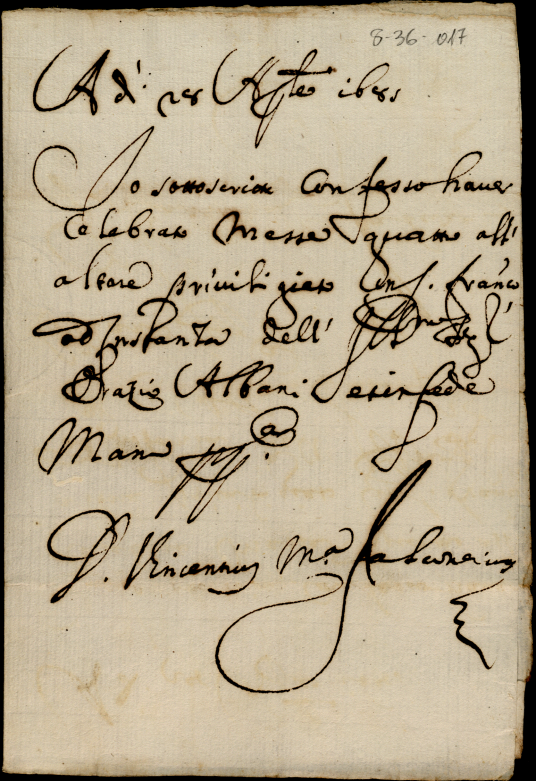 8-36-017
Adi' 28 Agste 1681
Io sottoscritto Confesso haver
Celebrato Messe quatto all'
altare privilegieto in S. franco
ad Instanza dell' Illmo Sigr
Orazio Albani et in fede
Manu ppa
D. Vincentius Ma. falconerius